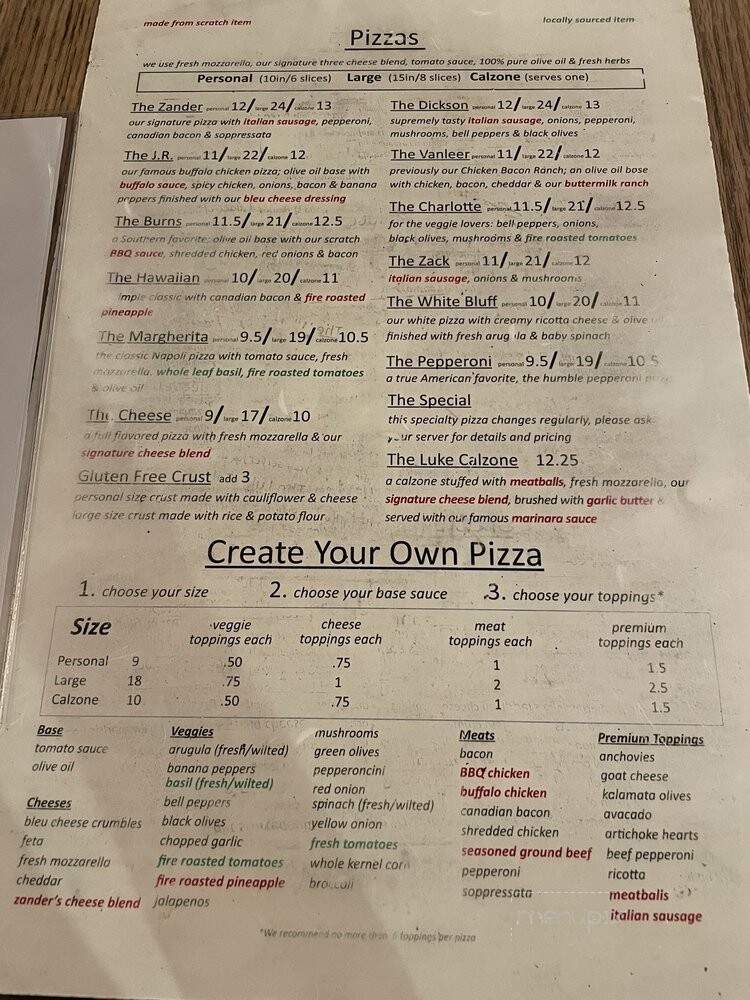 made from scratch item
locally sourced item
Pizzas
we use fresh mozzarella, our signature three cheese blend, tomato sauce, 100% pure olive oil & fresh herbs
Personal (10in/6 slices) Large (15in/8 slices) Calzone (serves one)
The Zander personal 12/large 24/calzone 13
our signature pizza with italian sausage, pepperoni,
canadian bacon & soppressata
The J.R. personal 11/large 22/calzone 12
our famous buffalo chicken pizza; olive oil base with
buffalo sauce, spicy chicken, onions, bacon & banana
peppers finished with our bleu cheese dressing
The Burns personal 11.5/large 21/calzone 12.5
a Southern favorite; olive oil base with our scratch
BBQ sauce, shredded chicken, red onions & bacon
The Hawaiian personal 10/large 20/calzone 11
simple classic with canadian bacon & fire roasted
pineapple
The Margherita personal 9.5/large 19/calzone 10.5
the classic Napoli pizza with tomato sauce, fresh
mozzarella, whole leaf basil, fire roasted tomatoes
& olive oil
The Cheese personal 9/large 17/calzone 10
a full flavored pizza with fresh mozzarella & our
signature cheese blend
Gluten Free Crust add 3
personal size crust made with cauliflower & cheese
large size crust made with rice & potato flour
The Dickson personal 12/large 24/calzone 13
supremely tasty italian sausage, onions, pepperoni,
mushrooms, bell peppers & black olives
The Vanleer personal 11/large 22/calzone 12
previously our Chicken Bacon Ranch; an olive oil base
with chicken, bacon, cheddar & our buttermilk ranch
The Charlotte personal 11.5/large 21/calzone 12.5
for the veggie lovers: bell peppers, onions,
black olives, mushrooms & fire roasted tomatoes
The Zack personal 11/large 21/calzone 12
italian sausage, onions & mushrooms
The White Bluff personal 10/large 20/calzone 11
our white pizza with creamy ricotta cheese & olive
finished with fresh arugula & baby spinach
The Pepperoni personal 9.5/large 19/calzone 10.5
a true American favorite, the humble pepperoni
The Special
this specialty pizza changes regularly, please ask
your server for details and pricing
The Luke Calzone 12.25
a calzone stuffed with meatballs, fresh mozzarella, our
signature cheese blend, brushed with garlic butter &
served with our famous marinara sauce
Create Your Own Pizza
1. choose your size 2. choose your base sauce 3. choose your toppings*
Size veggie toppings each cheese toppings each meat toppings each premium toppings each
Personal 9 .50 .75 1 1.5
Large 18 .75 1 2 2.5
Calzone 10 .50 .75 1 1.5
Base
tomato sauce
olive oil
Cheeses
bleu cheese crumbles
feta
fresh mozzarella
cheddar
zander's cheese blend
Veggies
arugula (fresh/wilted)
banana peppers
basil (fresh/wilted)
bell peppers
black olives
chopped garlic
fire roasted tomatoes
fire roasted pineapple
jalapenos
mushrooms
green olives
pepperoncini
red onion
spinach (fresh/wilted)
yellow onion
fresh tomatoes
whole kernel corn
broccoli
Meats
bacon
BBQ chicken
buffalo chicken
canadian bacon
shredded chicken
seasoned ground beef
pepperoni
soppressata
Premium Toppings
anchovies
goat cheese
kalamata olives
avacado
artichoke hearts
beef pepperoni
ricotta
meatballs
italian sausage
*We recommend no more than 6 toppings per pizza